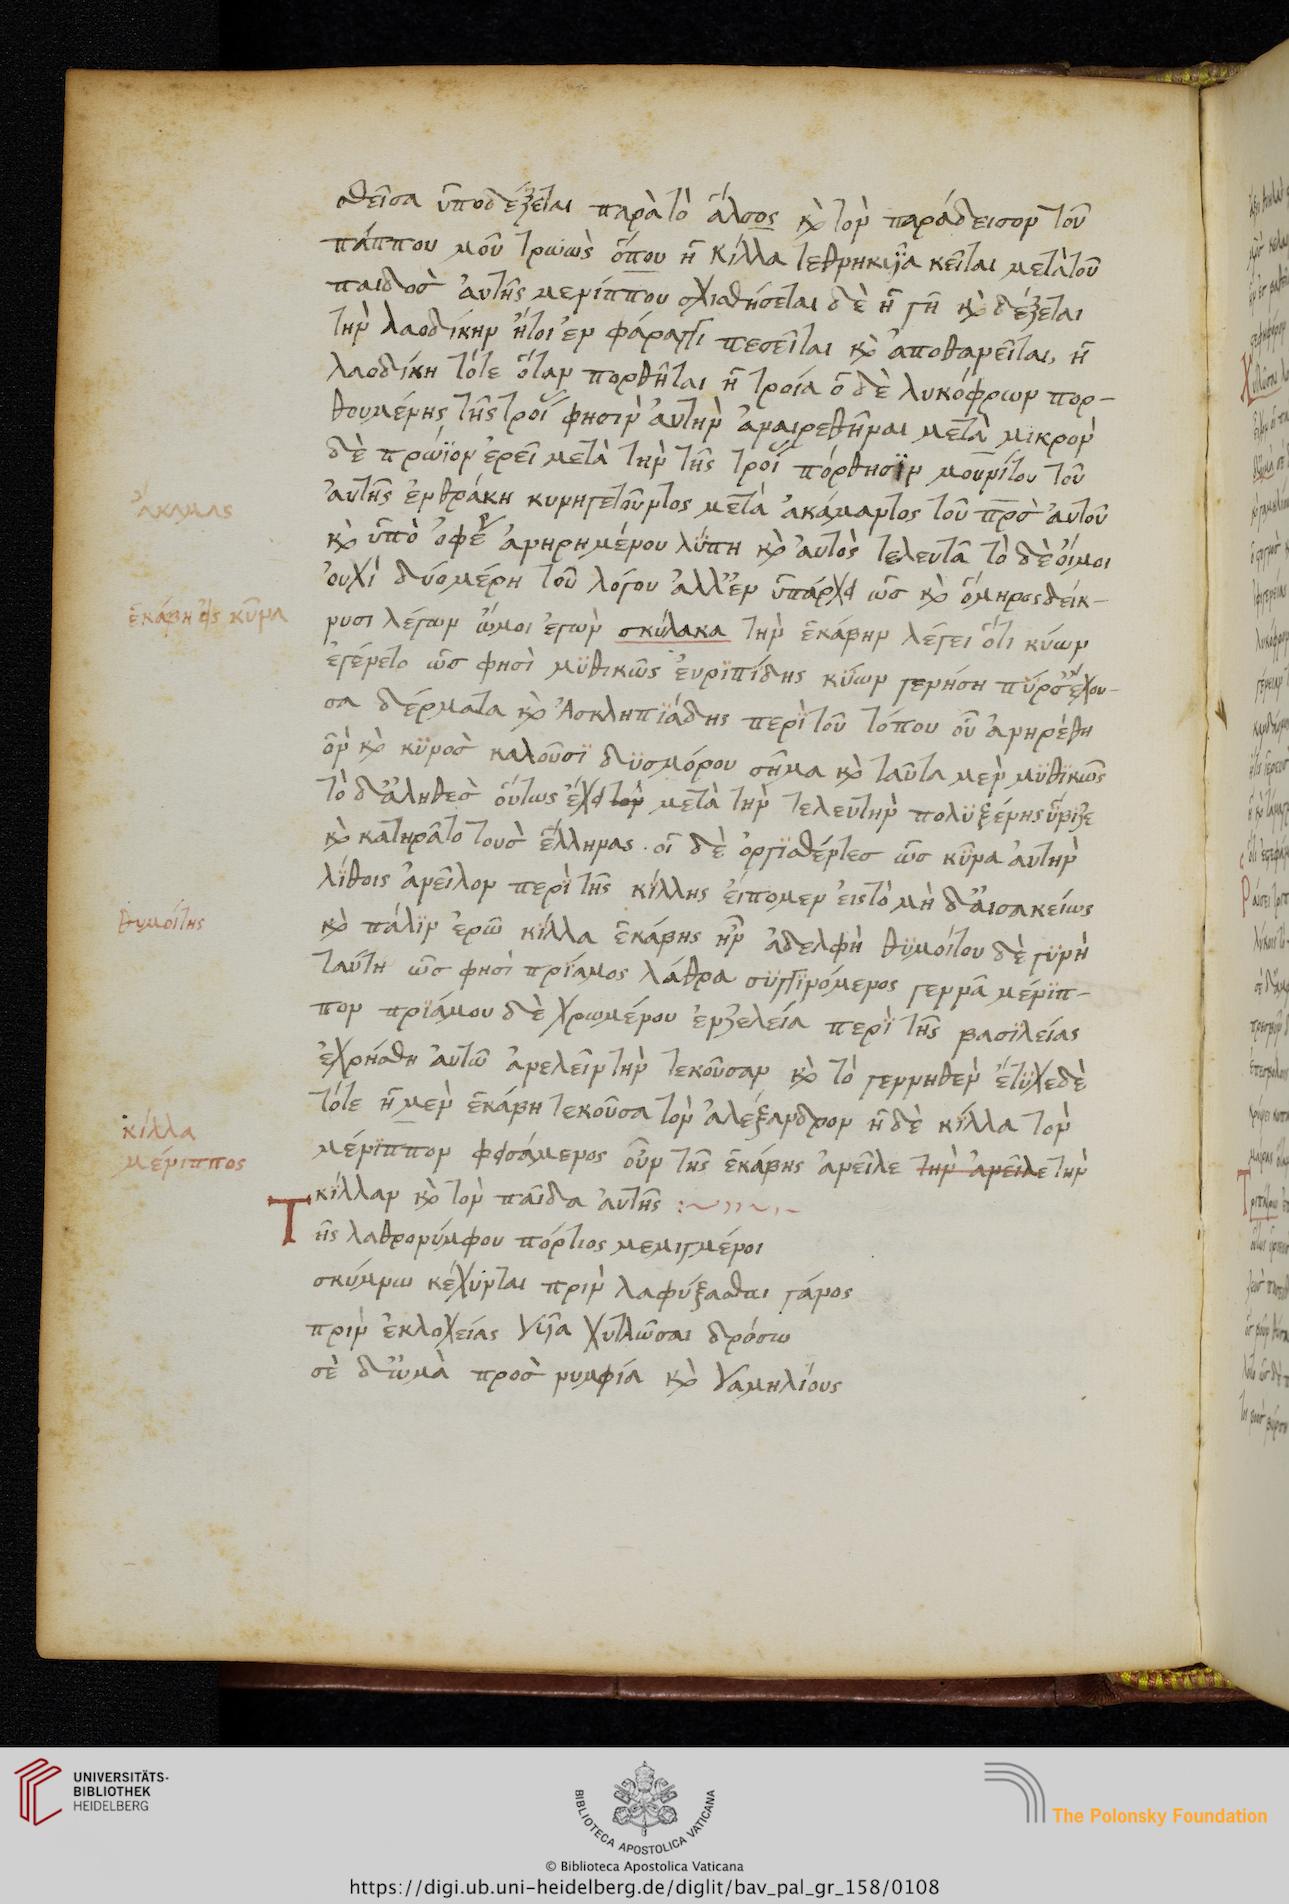 θεῖσα ὑποδέξεται παρὰ τὸ ἄλσος κὶ τὸν παράδεισον τοῦ
πάππου μοῦ τρωὼς ὅπου ἡ κίλλα τεθνηκυῖα κεῖται μετὰ τοῦ
παιδὸς αὐτῆς μενίππου σχισθήσεται δὲ ἡ γῆ κὶ δέξεται
τὴν λαοδίκην ἤτοι ἐν φάραγγι πεσεῖται κὶ ἀποθανεῖται, ἡ
λαοδίκη τότε ὅταν πορθῆται ἡ τροία ὁ δὲ λυκόφρων πορ-
θουμένης τῆς τροί φησὶν αὐτὴν ἀναιρεθῆναι μετὰ μικρὸν
δὲ πρώϊον ἐρεῖ μετὰ τὴν τῆς τροί πόρθησϊν μουνίτου τοῦ
αὐτῆς ἐν θράκη κυνηγετοῦντος μετὰ ἀκάμαντος τοῦ προσ αὐτοῦ
κὶ ὑπὸ ὀφε ἀνηρημένου λύπη κὶ αὐτὸς τελευτᾶ τὸ δὲ οἴμοι
οὐχὶ δύο μέρη τοῦ λόγου ἀλλ' ἓν ὑπάρχει ὡς κὶ ὅμηρος δείκ-
νυσι λέγων ὤμοι ἐγὼν σκύλακα τὴν ἑκάβην λέγει ὅτι κύων
ἐγένετο ὡς φησὶ μϋθικῶς εὐριπίδης κύων γενήση πύρσ' ἔχου-
σα δέρματα κὶ ἀσκληπϊάδης περὶ τοῦ τόπου οὗ ἀνηρέθη
ὃν κὶ κϋνὸς καλοῦσϊ δϋσμόρου σῆμα κὶ ταῦτα μὲν μϋθϊκῶς
τὸ δ' ἀληθὲς οὕτως ἔχει τὸν μετὰ τὴν τελευτὴν πολϋξένης ὕβριζε
κὶ κατηρᾶτο τοὺς ἕλληνας . οἱ δὲ ὀργϊσθέντες ὡς κῦνα αὐτὴν
λίθοις ἀνεῖλον περὶ τῆς κίλλης εἴπομεν εἰς τὸ μὴ δ' αἰσακείως
κὶ πάλϊν ἐρῶ κϊλλα ἑκάβης ἦν ἀδελφὴ θϋμοίτου δὲ γϋνὴ
ταύτη ὡς φησὶ πρίαμος λάθρα συγγϊνόμενος γεννᾶ μένϊπ-
πον πρϊάμου δὲ χρωμένου ἐν ζελεία περὶ τῆς βασϊλείας
ἐχρήσθη αὐτῶ ἀνελεῖν τὴν τεκοῦσαν κὶ τὸ γεννηθὲν ἔτϋχε δὲ
τότε ἡ μὲν ἑκάβη τεκοῦσα τὸν ἀλέξανδρον ἡ δὲ κίλλα τὸν
μένϊππον φεισάμενος οὖν τῆς ἑκάβης ἀνεῖλε τὴν ἀνεῖλε τὴν
κίλλαν κὶ τὸν παῖδα αὐτῆς :
Τῆς λαθρονύμφου πόρτιος μεμιγμένοι
σκύμνω κέχυνται πρὶν λαφύξασθαι γάνος
πρὶν ἐκλοχείας γυῖα χυτλῶσαι δρόσω
σὲ δ' ὠμὰ πρὸς νυμφία κὶ γαμηλίους
ἀκαμας
ἑκάβη εἰς κῦνα
θυμοίτης
κίλλα
μένιππος
UNIVERSITÄTS-
BIBLIOTHEK
HEIDELBERG
BIBLIOTHECA APOSTOLICA VATICANA
The Polonsky Foundation
© Biblioteca Apostolica Vaticana
https://digi.ub.uni-heidelberg.de/diglit/bav_pal_gr_158/0108